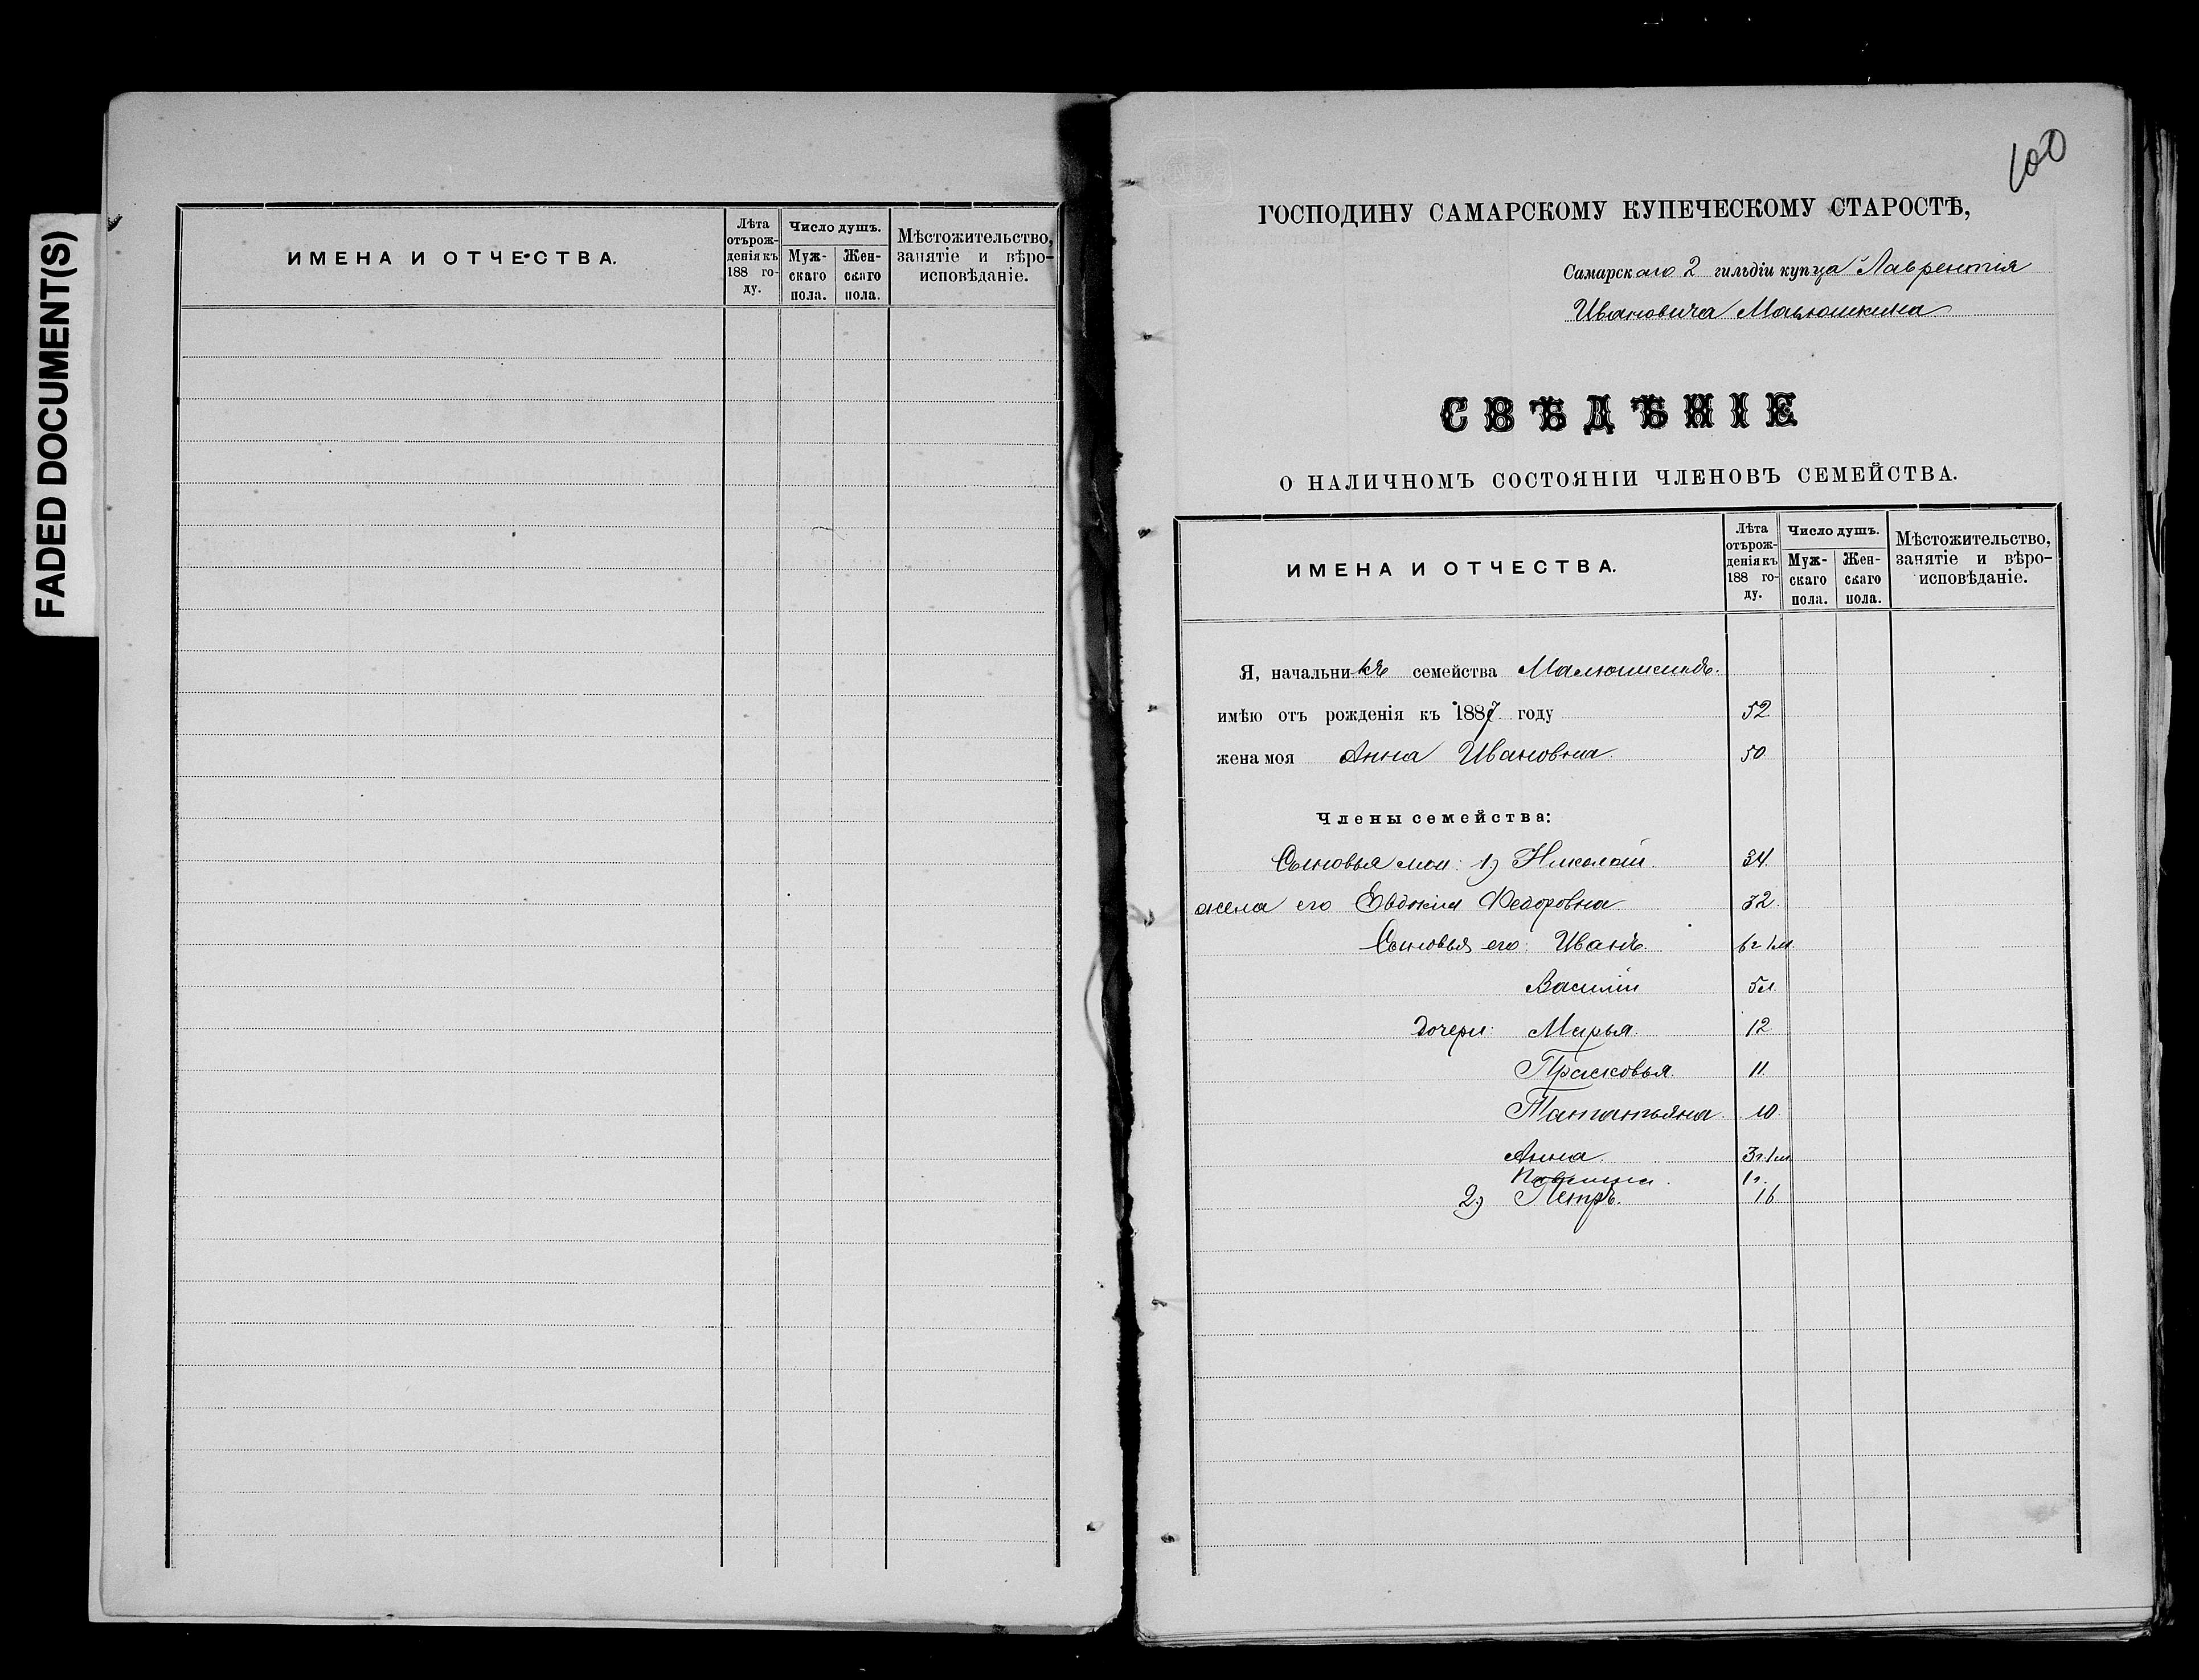 FADED DOCUMENT(S)
ИМЕНА И ОТЧЕСТВА.
Лѣта отърож-денія къ 188 го-ду.
Число душъ.
Муж-скаго пола.
Жен-скаго пола.
Мѣстожительство, занятіе и вѣро-исповѣданіе.
100
ГОСПОДИНУ САМАРСКОМУ КУПЕЧЕСКОМУ СТАРОСТѢ,
Самарскаго 2 гильдіи купца Лаврентія
Ивановича Малюшкина
СВѢДѢНІЕ
О НАЛИЧНОМЪ СОСТОЯНІИ ЧЛЕНОВЪ СЕМЕЙСТВА.
ИМЕНА И ОТЧЕСТВА.
Лѣта отърож-денія къ 188 го-ду.
Число душъ.
Муж-скаго пола.
Жен-скаго пола.
Мѣстожительство, занятіе и вѣро-исповѣданіе.
Я, начальникъ семейства Малюшкинъ.
имѣю отъ рожденія къ 1887 году 52
жена моя Анна Ивановна 50
Члены семейства:
Сыновья мои: 1) Николай. 34
жена его Евдокия Федоровна 32
Сыновья его: Иванъ 6г 1м
Василій 5л
дочери: Марья 12
Прасковья 11
Татьяна 10
Анна 3г. 1м
1г.
2) Петръ. 16